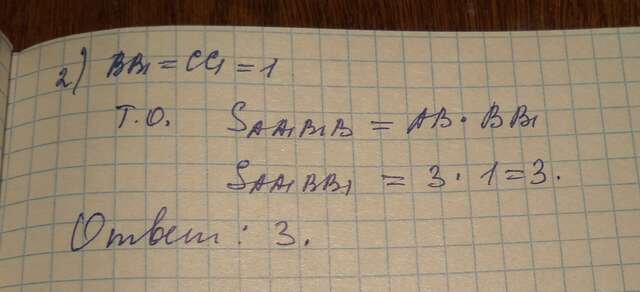 2) BB₁ = CC₁ = 1
Т.О. SAA₁B₁B = AB · BB₁
SAA₁BB₁ = 3 · 1 = 3.
Ответ: 3.